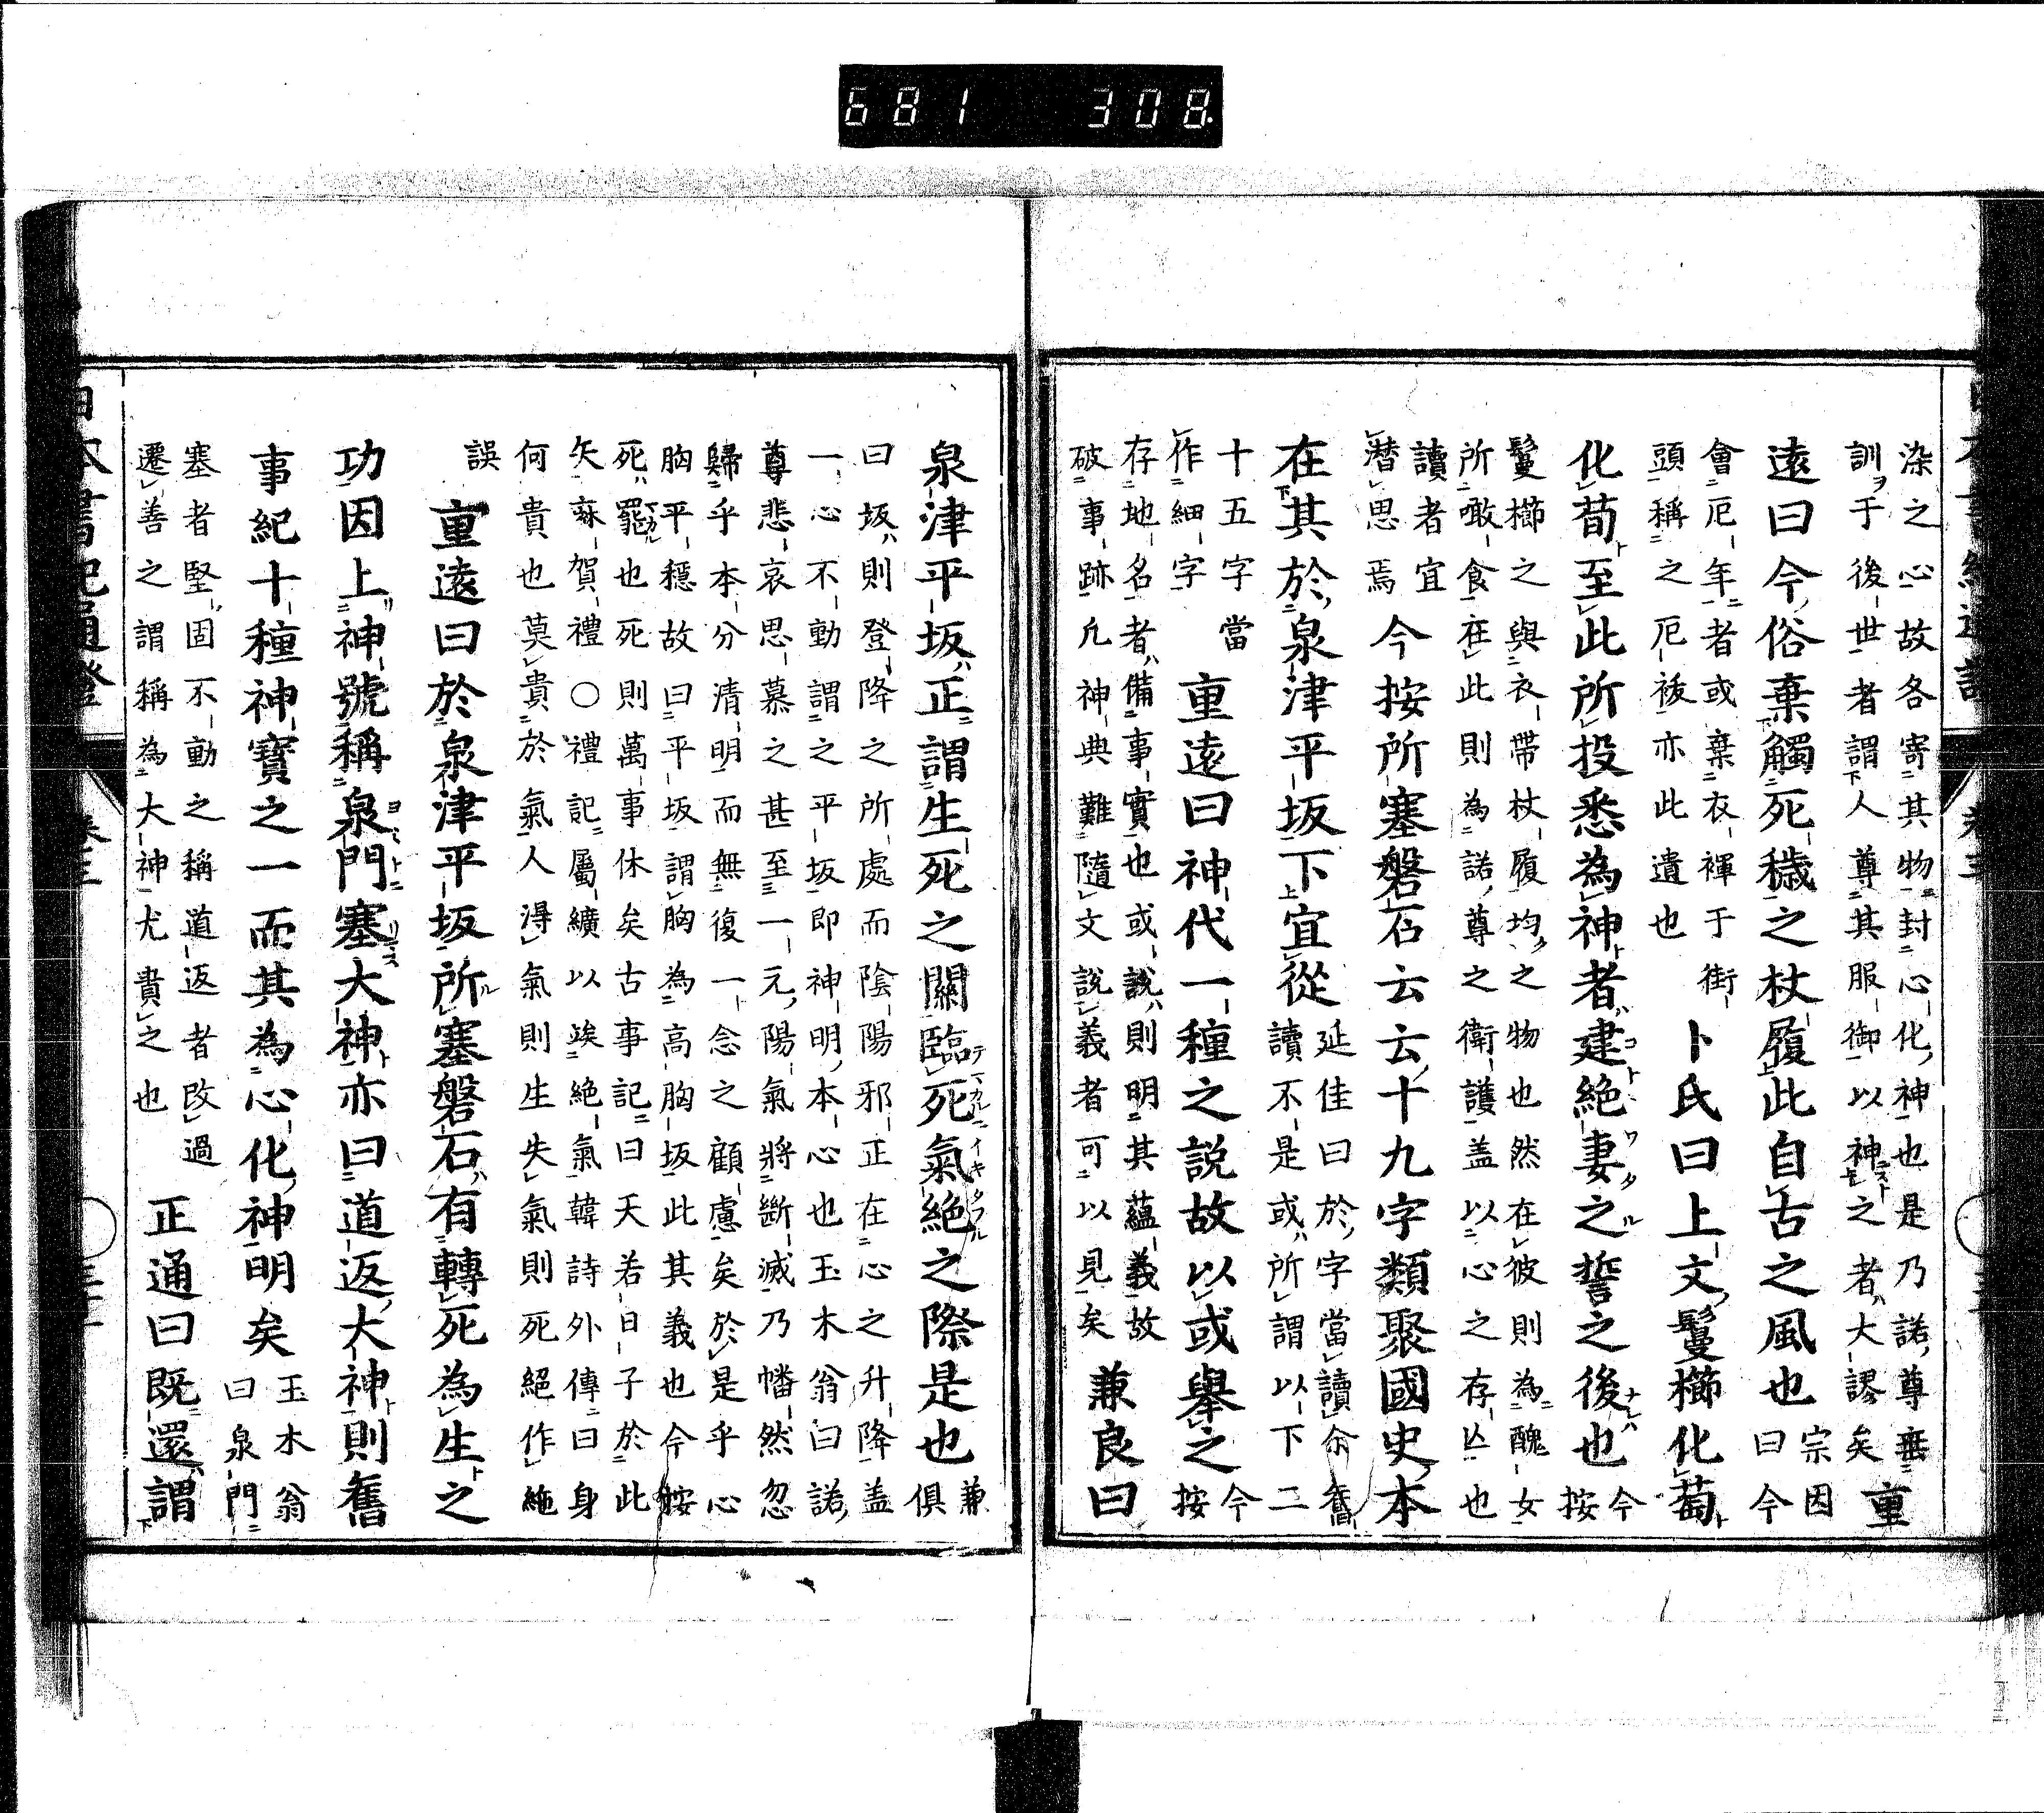 681 308
染之心故各寄其物封心化神也是乃諾尊垂
訓于後世者謂人尊其服御以神之者大謬矣 重
遠曰今俗棄觸死穢之杖履此自古之風也 宗因
曰今
會厄年者或棄衣褌于街
頭稱之厄祓亦此遺也 卜氏曰上文鬘櫛化萄
化荀至此所投悉為神者建絶妻之誓之後也 今
按
鬘櫛之與衣帶杖履均之物也然在彼則為醜女
所噉食在此則為諾尊之衛護盖以心之存亾也
讀者宜
潜思焉 今按所塞磐石云云十九字類聚國史本
在其於泉津平坂下宜從 延佳曰於字當讀
讀不是或所謂以下二
十五字當
作細字 重遠曰神代一種之説故以或舉之 今
按
存地名者備事實也或説則明其蘊義故
破事跡凢神典難隨文説義者可以見矣 兼良曰
泉津平坂正謂生死之關臨死氣絶之際是也 兼
俱
曰坂則登降之所處而陰陽邪正在心之升降盖
一心不動謂之平坂即神明本心也玉木翁曰諾
尊悲哀思慕之甚至一元陽氣將斷滅乃幡然忽
歸乎本分清明而無復一念之顧慮矣於是乎心
胸平穩故曰平坂謂胸為高胸坂此其義也今按
死罷也死則萬事休矣古事記曰天若日子於此
矢麻賀禮〇禮記屬纊以竢絶氣韓詩外傳曰身
何貴也莫貴於氣人得氣則生失氣則死絕作絁
誤 重遠曰於泉津平坂所塞磐石有轉死為生之
功因上神號稱泉門塞大神亦曰道返大神則舊
事紀十種神寳之一而其為心化神明矣 玉木翁
曰泉門
塞者堅固不動之稱道返者改過
遷善之謂稱為大神尤貴之也 正通曰既還謂
日本書紀通證 卷三